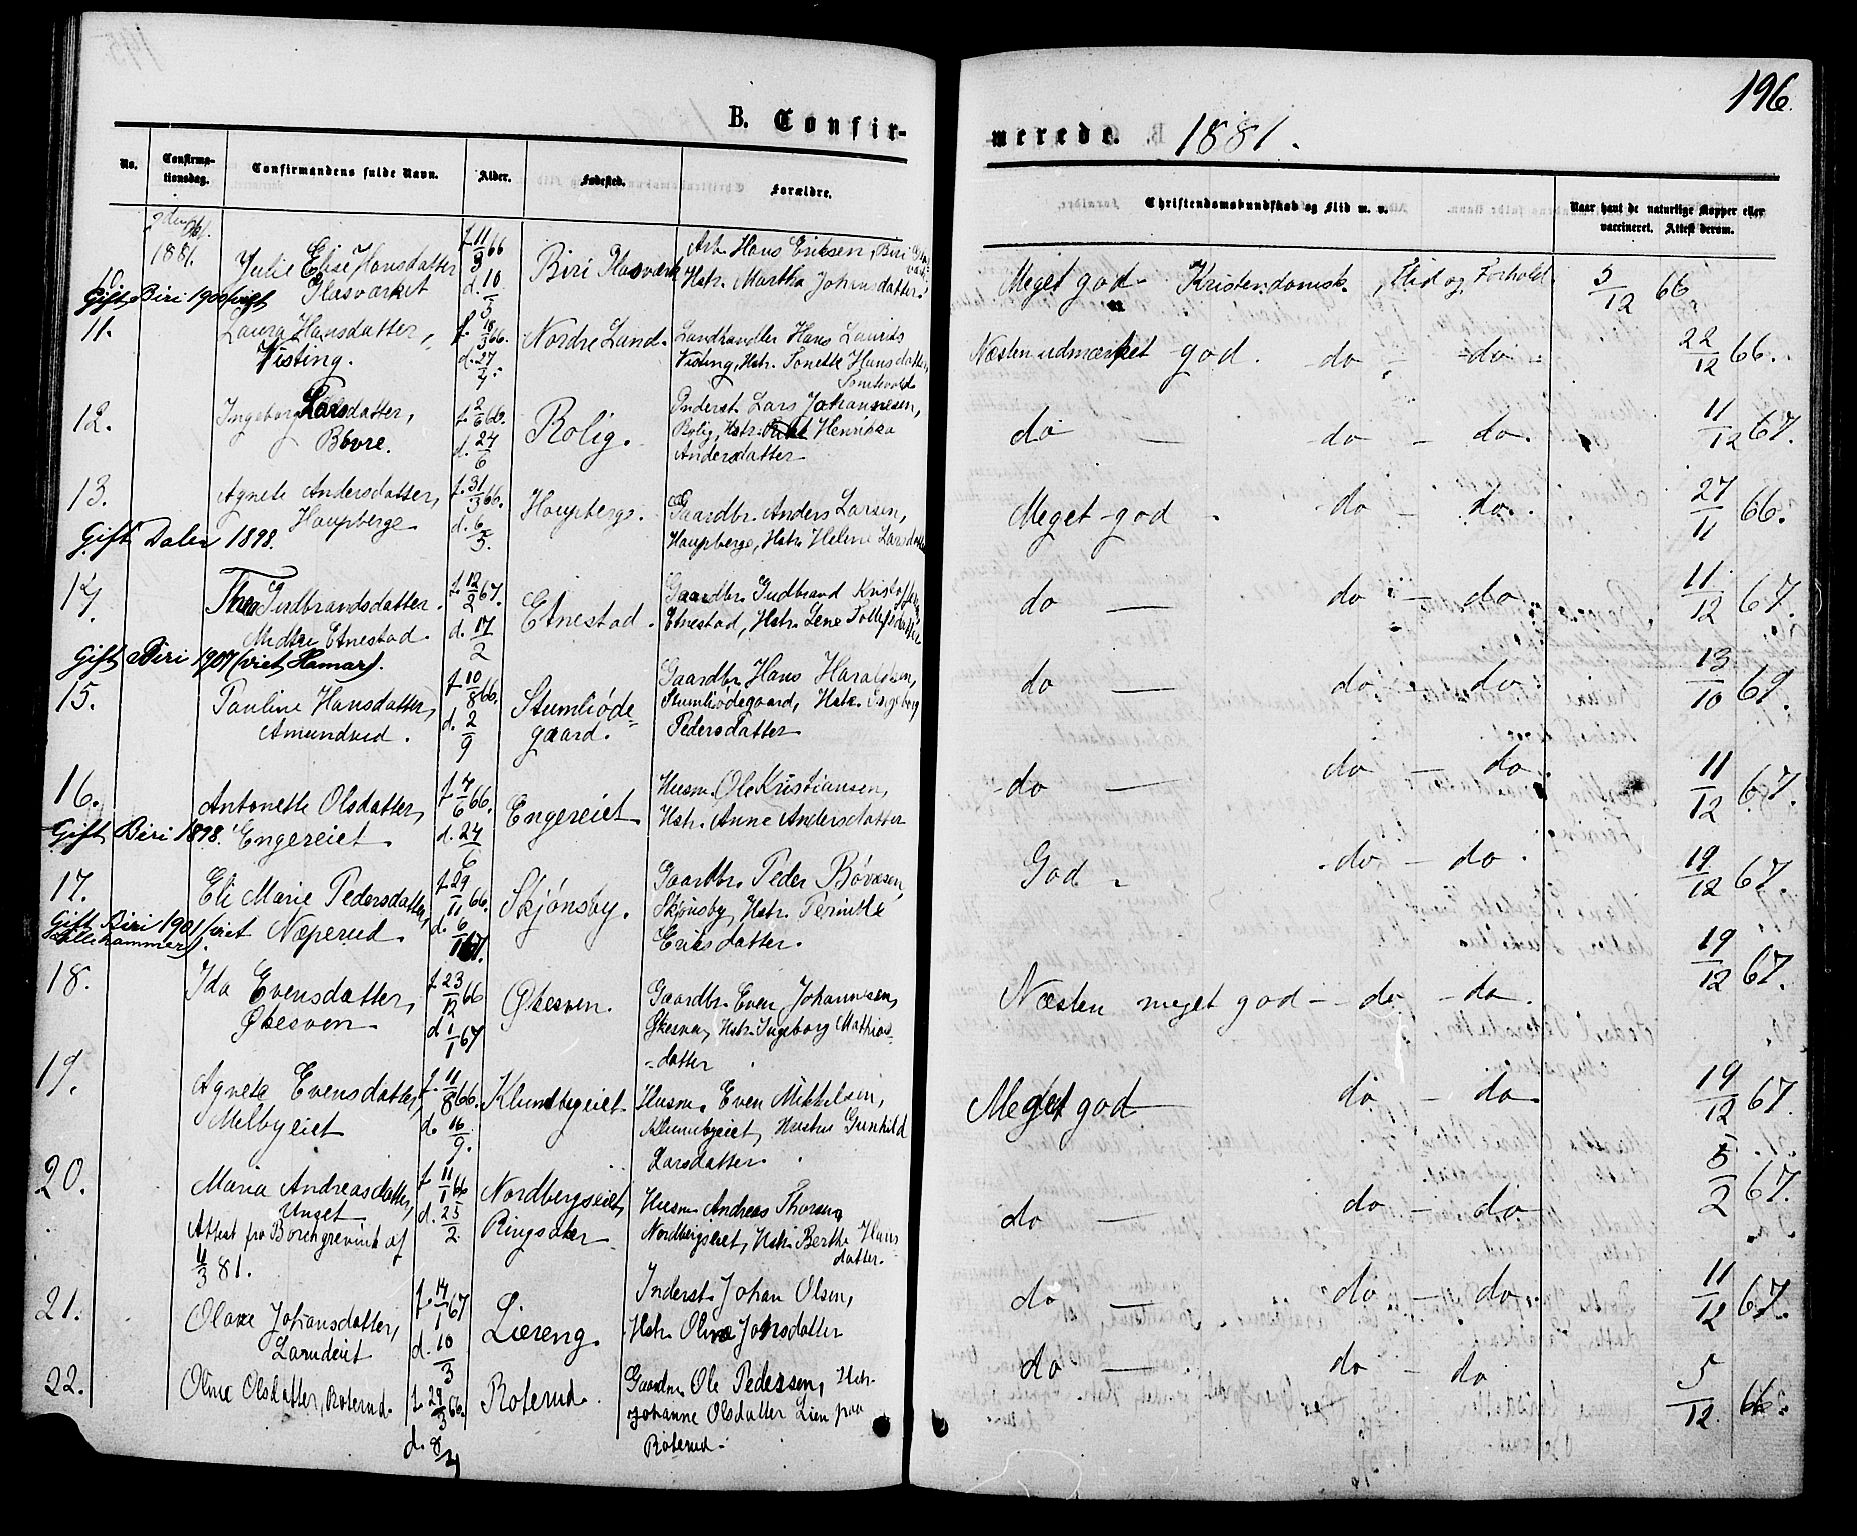 196.
B. Confirmerede. 1881.
No. Confirmationsdag. Confirmandens fulde Navn. Alder. Fødested. Forældre. Christendomskundskab og Flid m. v. Naar havt de naturlige Kopper eller vaccineret. Attest derom.
1881.
10. Julie Elise Hansdatter
Glasværket
f. 11/3 66
d. 10/5
Biri Glasværk
Arb. Hans Eriksen, Biri
Hstr. Martha Johnsdatter
Meget god Kristendomsk. Flid og Forhold.
5/12 66
Gift Biri 1900
11. Laura Hansdatter,
Visting.
f. 18/3 66.
d. 27/4.
Nordre Land.
Landhandler Hans Laurits
Visting, Hstr. Tonette Hansdatter,
Næsten udmærket god. do do
22/12 66.
12. Ingeborg Larsdatter,
Bovre.
f. 2/6 66.
d. 24/6
Rolig.
Inderst Lars Johannesen,
Rolig, Hstr. Henrikka
Andersdatter
do do do.
11/12 67.
13. Agnete Andersdatter,
Haugsberge
f. 31/3 66.
d. 6/5.
Haugsberge.
Gaardbr. Anders Larsen,
Haugsberge, Hstr. Helene Larsdatter
Meget god. do do.
27/11 66.
Gift Dalen 1898.
14. Thea Gudbrandsdatter.
Midtre Etnestad.
f. 12/2 67.
d. 17/2
Etnestad.
Gaardbr. Gudbrand Kristoffersen
Etnestad, Hstr. Lene Tollefsdatter
do do do.
11/12 67.
Gift Biri 1907 (viet Hamar).
15. Pauline Hansdatter,
Amundrud.
f. 10/8 66.
d. 2/9
Stumliødegaard.
Gaardbr. Hans Haraldsen,
Stumliødegaard, Hstr. Ingeborg
Pedersdatter
do do do.
13/10 67.
16. Antonette Olsdatter,
Engereiet
f. 7/6 66.
d. 24/6
Engereiet
Husm. Ole Kristiansen,
Hstr. Anne Andersdatter
do do do.
11/12 67.
Gift Biri 1898.
17. Eli Marie Pedersdatter,
Næperud.
f. 29/11 66.
d. 6/1 67.
Skjønsby.
Gaardbr. Peder
Skjønsby, Hstr. Pernille
Eriksdatter.
God. do do.
19/12 67.
Gift Biri 1901 (viet
Lillehammer).
18. Ida Evensdatter,
Økesven
f. 23/12 66
d. 1/1 67
Økesven.
Gaardbr. Even Johannesen,
Økesven, Hstr. Ingeborg Mathiasdatter
Næsten meget god do do.
19/12 67.
19. Agnete Evensdatter,
Melbyeiet
f. 11/8 66.
d. 16/9.
Klundbyeiet
Husm. Even Mikkelsen,
Klundbyeiet, Hustru Gunhild
Larsdatter.
Meget god do do
19/12 67.
20. Maria Andreasdatter,
Unset
Attest fra Borchgrevink af
4/3 81.
f. 11/1 66
d. 25/2.
Nordbergseiet,
Ringsaker
Husm. Andreas Thorsen,
Nordbergseiet, Hstr. Berthe Hansdatter.
do do do
5/2 67.
21. Olave Johansdatter,
f. 14/1 67
d. 10/3
Liereng.
Inderst Johan Olsen,
Hstr. Oline Johnsdatter
do do do.
11/12 67.
22. Oline Olsdatter, Roterud.
f. 29/3 66.
d. 8/4
Roterud.
Gaardm. Ole Pedersen, Hstr.
Johanne Olsdatter Lien paa
Roterud.
do do do
5/12 66.